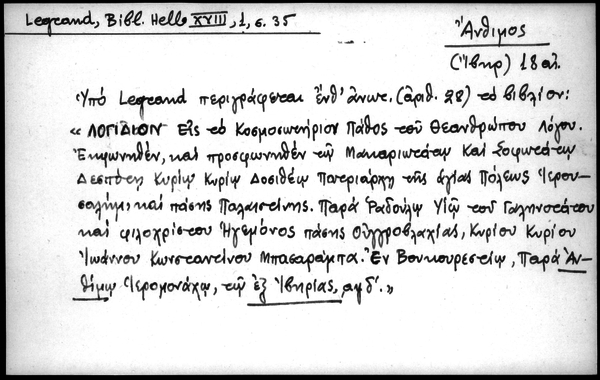 Legrand, Bibl. Hell. XVIII, 1, σ. 35
Ἄνθιμος
(Ἴβηρ) 18 αἰ.
Ὑπό Legrand περιγράφεται ἔνθ' ἀνωτ. (ἀριθ. 28) τό βιβλίον:
« ΛΟΓΙΔΙΟΝ Εἰς τό Κοσμοσωτήριον Πάθος τοῦ Θεανθρώπου Λόγου.
Ἐκφωνηθέν, καί προσφωνηθέν τῷ Μακαριωτάτῳ Καί Σοφωτάτῳ
Δεσπότῃ Κυρίῳ Κυρίῳ Δοσιθέῳ Πατριάρχῃ τῆς ἁγίας Πόλεως Ἱερου-
σαλήμ, καί πάσης Παλαιστίνης. Παρά Ῥαδούλῳ Υἱῷ τοῦ Γαληνοτάτου
καί φιλοχρίστου Ἡγεμόνος πάσης Οὐγγροβλαχίας, Κυρίου Κυρίου
Ἰωάννου Κωνσταντίνου Μπασαράμπα. Ἐν Βουκουρεστίῳ, Παρά Ἀν-
θίμῳ Ἱερομονάχῳ, τῷ ἐξ Ἰβηρίας, αψδ'. »